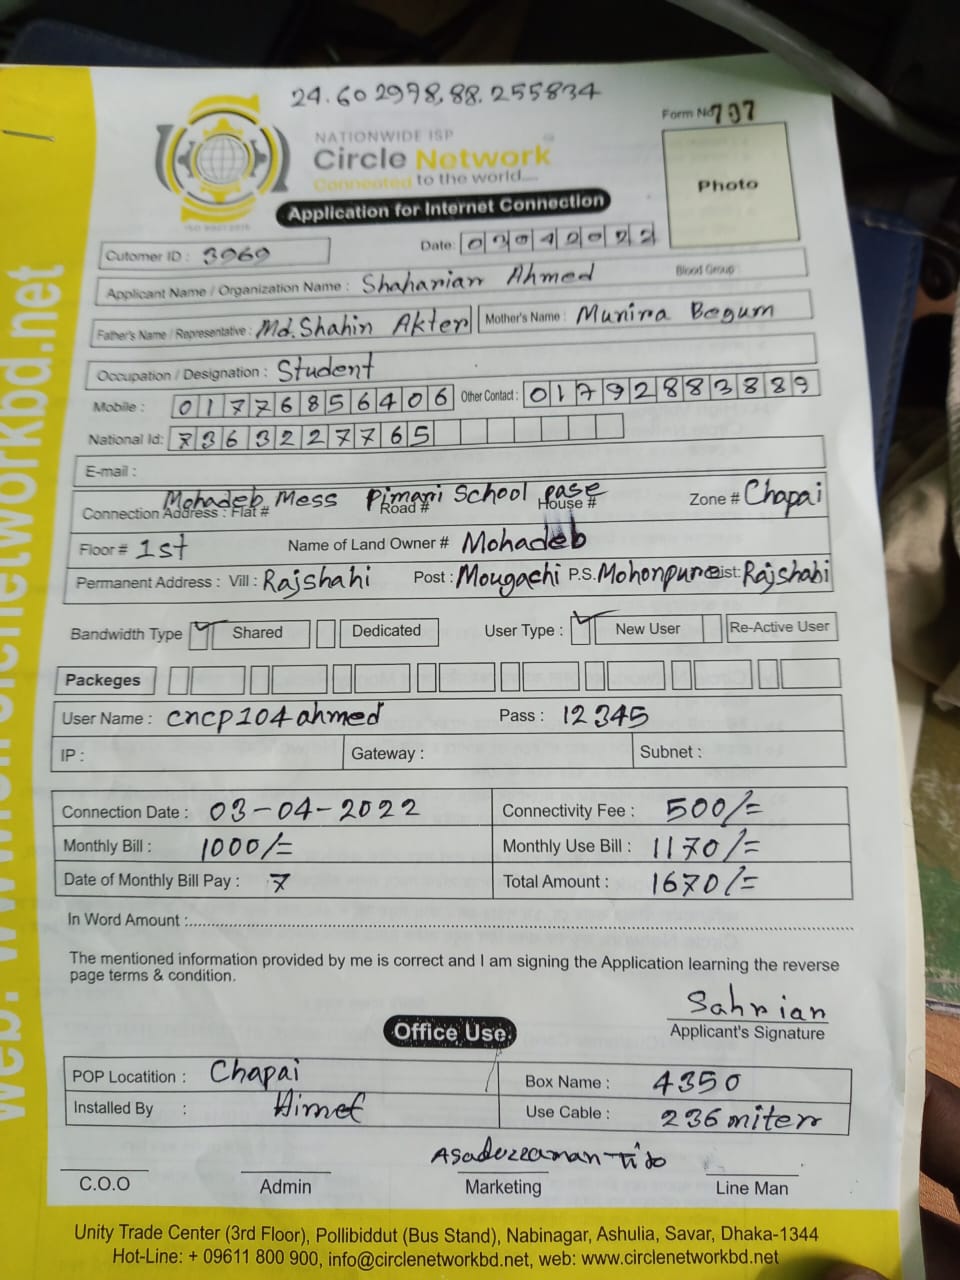 24.602978,88.255834
Form No 797
NATIONWIDE ISP
Circle Network
Connected to the world....
Photo
Application for Internet Connection
ISO 9001:2015
Cutomer ID : 3969
Date: 03042022
Applicant Name / Organization Name : Shahariar Ahmed Blood Group :
Father's Name / Representative : Md. Shahin Akter Mother's Name : Munira Begum
Occupation / Designation : Student
Mobile : 01776856406 Other Contact : 01792883889
National Id: 7363227765
E-mail :
Mohadeb Mess Pimani School pase
Connection Address : Flat # Road # House # Zone # Chapai
Floor # 1st Name of Land Owner # Mohadeb
Permanent Address : Vill : Rajshahi Post : Mougachi P.S. Mohonpur Dist: Rajshahi
Bandwidth Type Shared Dedicated User Type : New User Re-Active User
Packeges
User Name : cncp104ahmed Pass : 12345
IP : Gateway : Subnet :
Connection Date : 03-04-2022 Connectivity Fee : 500/=
Monthly Bill : 1000/= Monthly Use Bill : 1170/=
Date of Monthly Bill Pay : 7 Total Amount : 1670/=
In Word Amount :
The mentioned information provided by me is correct and I am signing the Application learning the reverse
page terms & condition.
Sahrian
Applicant's Signature
Office Use
POP Locatition : Chapai Box Name : 4350
Installed By : Use Cable : 236 miter
Asaduzzaman
C.O.O Admin Marketing Line Man
Unity Trade Center (3rd Floor), Pollibiddut (Bus Stand), Nabinagar, Ashulia, Savar, Dhaka-1344
Hot-Line: + 09611 800 900, info@circlenetworkbd.net, web: www.circlenetworkbd.net
web: www.circlenetworkbd.net